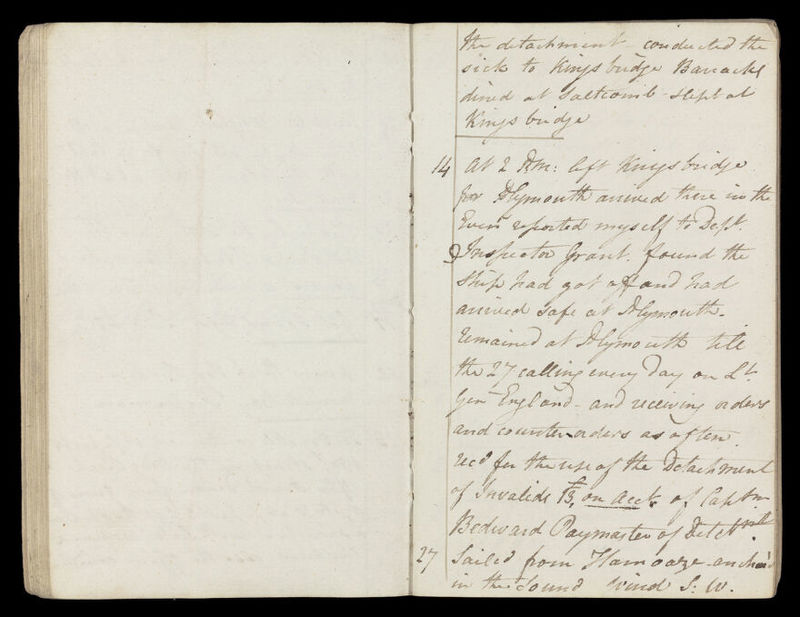 the detachment conducted the
sick to Kingsbridge Barracks
dined at Saltcomb slept at
Kingsbridge
14 At 2 P.M: left Kingsbridge
for Plymouth arrived there in the
Even reported myself to Dept.
Inspector Grant. found the
Ship had got off and had
arrived safe at Plymouth.
remained at Plymouth till
the 27 calling every day on Lt.
Gen England - and receiving orders
and counter orders as often.
recd for the use of the Detachment
of Invalids on acct. of Captn
Bedward Paymaster of Detchmt
27 Sailed from Hamoaze anchor'd
in the Sound Wind S: W.